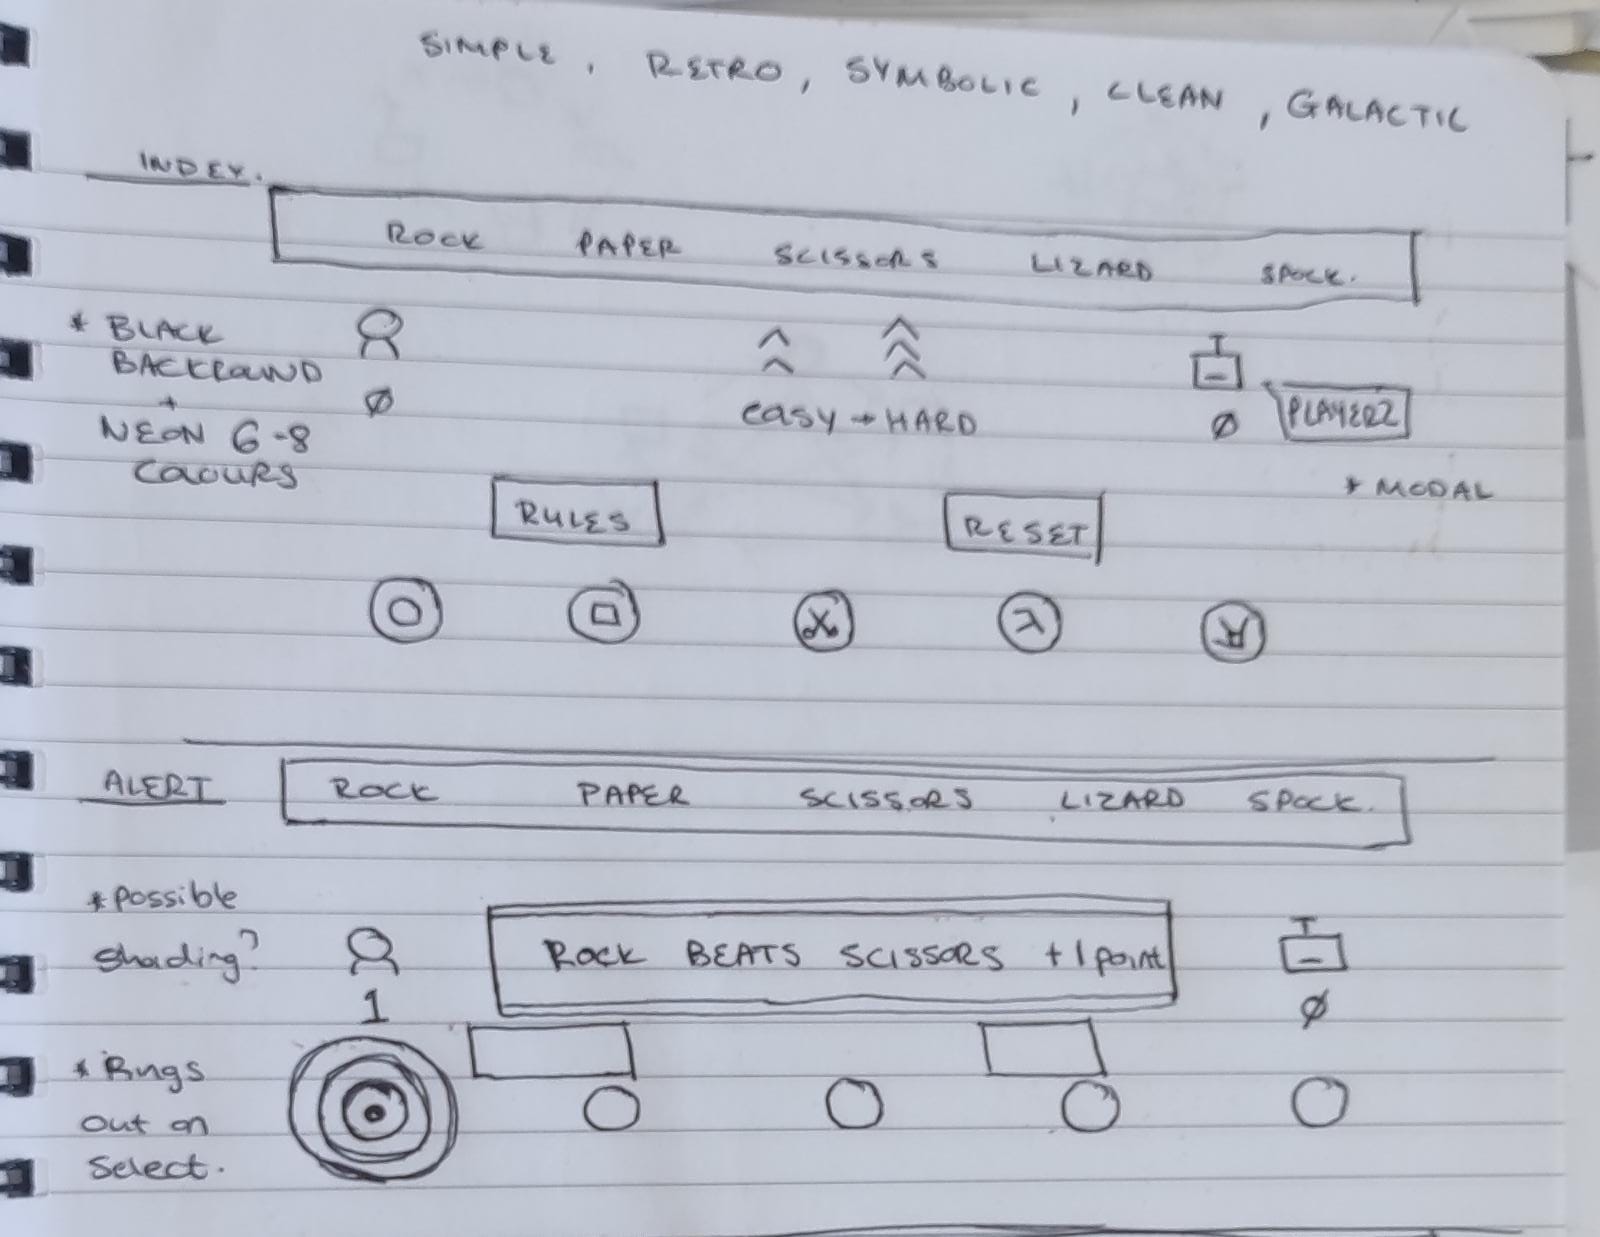 SIMPLE, RETRO, SYMBOLIC, CLEAN, GALACTIC
INDEX.
ROCK PAPER SCISSORS LIZARD SPOCK.
* BLACK
BACKROUND
+
NEON 6-8
COLOURS
Ø
easy → HARD
Ø
PLAYER2
* MODAL
RULES
RESET
ALERT
ROCK PAPER SCISSORS LIZARD SPOCK.
* Possible
Shading?
ROCK BEATS SCISSORS +1 point
1
Ø
* Rings
out on
Select.